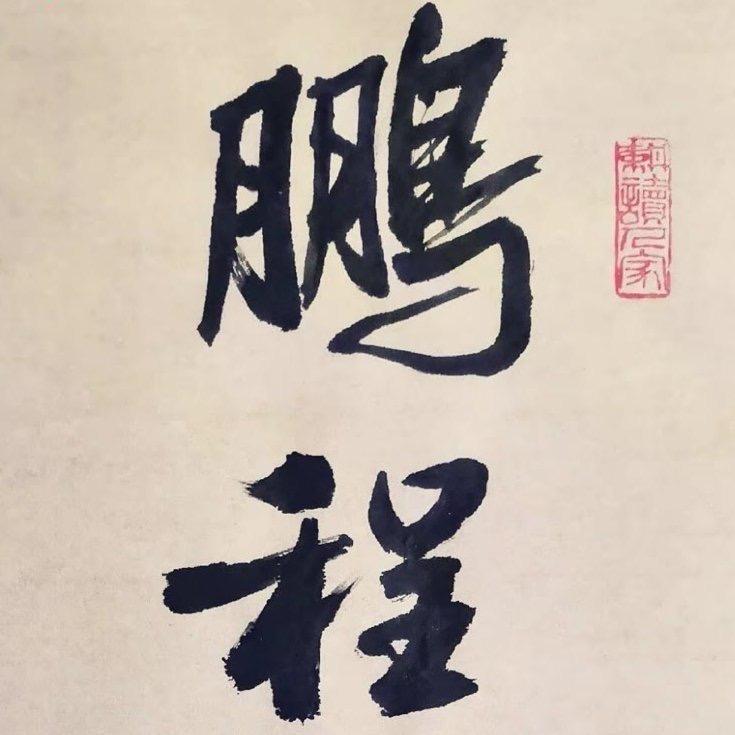 鵬
程
耕讀人家